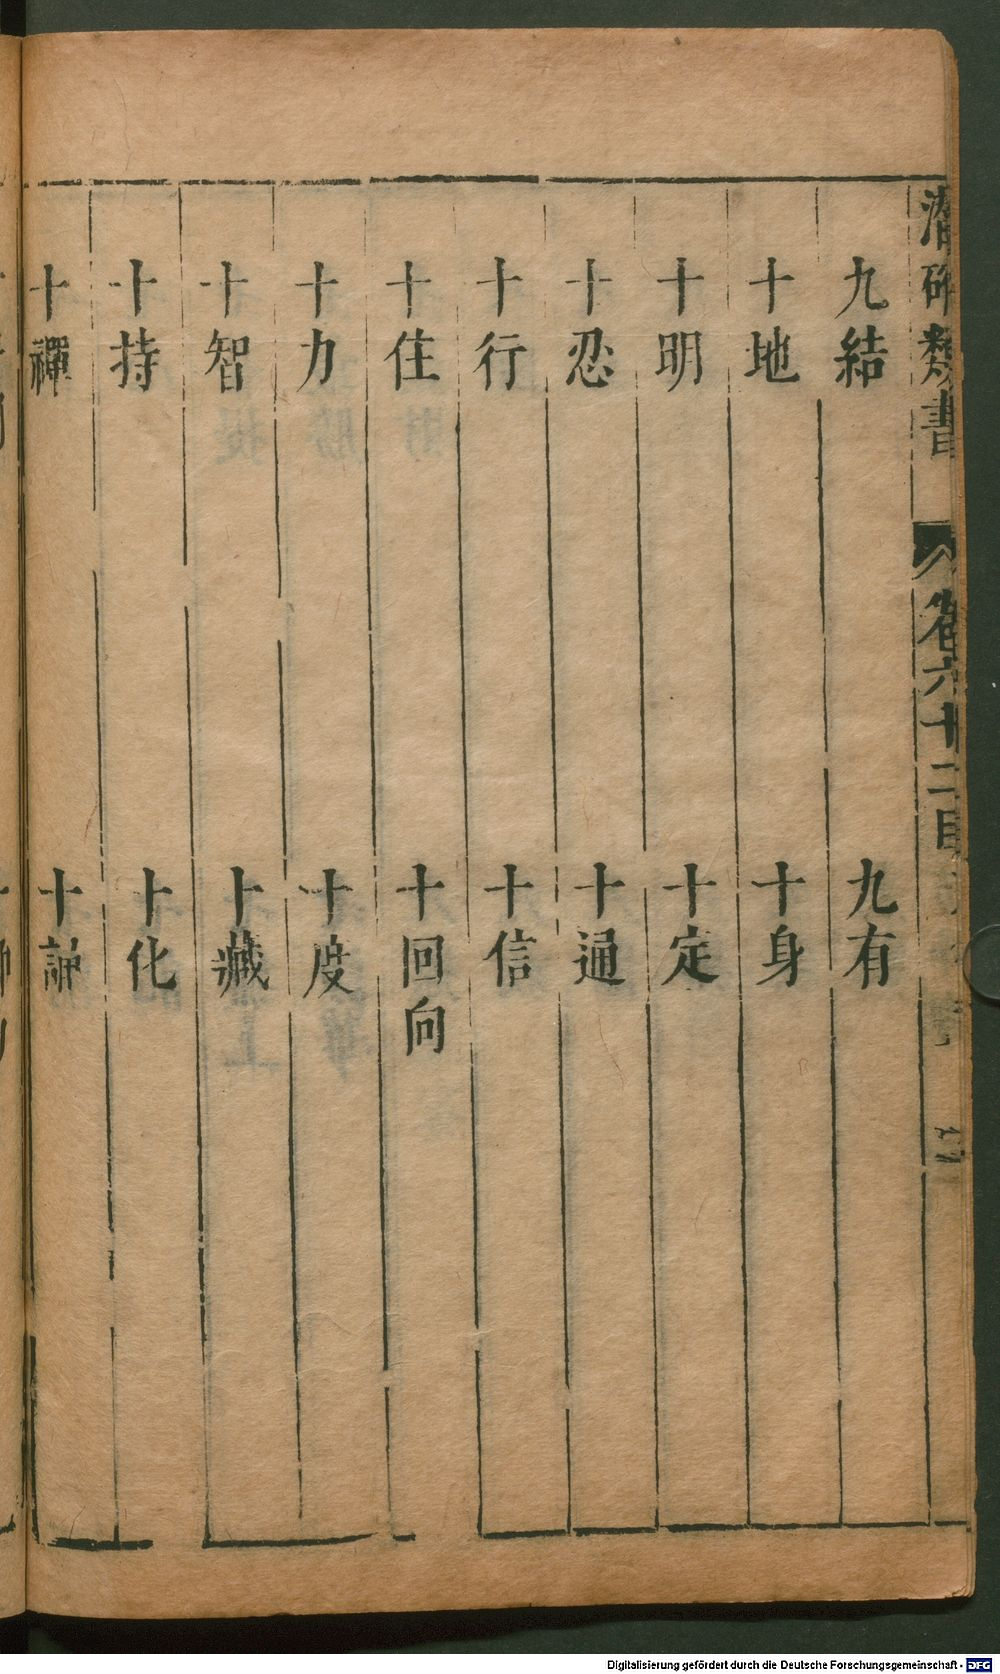 潛確類書 卷六十二目
九結 九有
十地 十身
十明 十定
十忍 十通
十行 十信
十住 十回向
十力 十度
十智 十藏
十持 十化
十禪
Digitalisierung gefördert durch die Deutsche Forschungsgemeinschaft - DFG